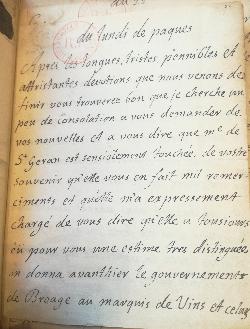 du lundi de paques
Apres les longues, tristes pennibles et
attristantes devotions que nous venons de
finir vous trouverez bon que je cherche un
peu de consolation a vous demander de
vos nouvelles et a vous dire que me. de
St. Geran est sensiblement touchée de vostre
souvenir qu'elle vous en fait mil remer
ciments et quelle m'a expressement
chargé de vous dire qu'elle a tousiours
eü pour vous une estime tres distinguée
on donna avanthier le gouvernement
de Broage au marquis de Vins et celuy